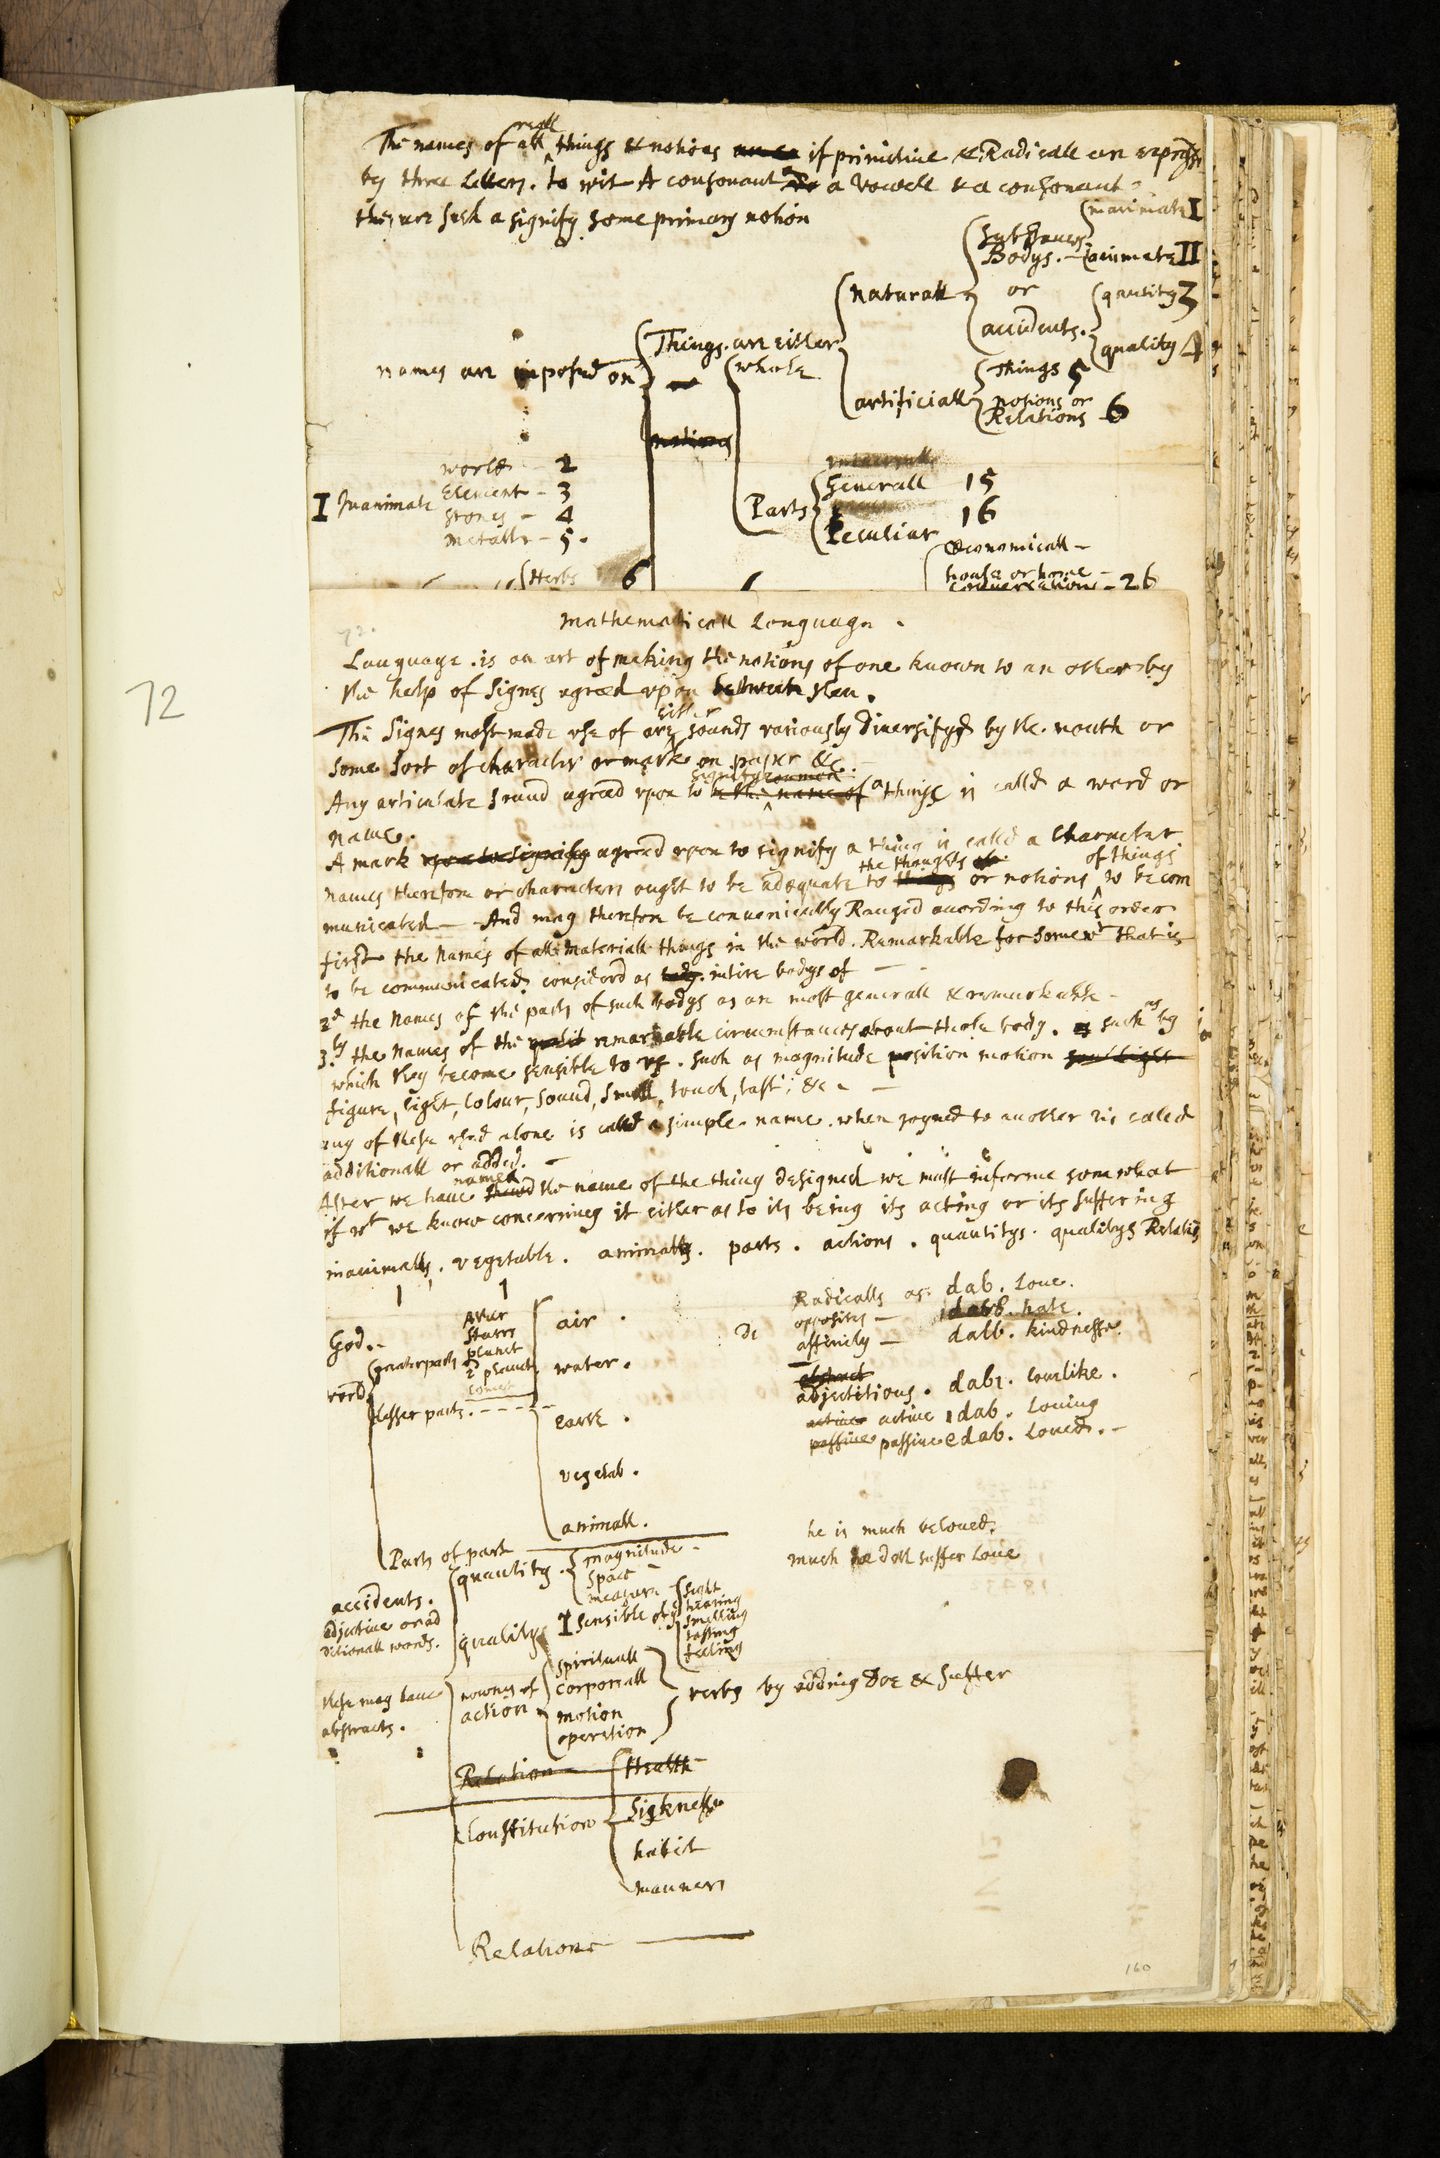 The names of all reall things & notions if primitive & Radicall are exprest
by three Letters. to wit A consonant a vowell & a consonant
these are such a signify some primary notion
inanimate I
substances
Bodys. animate II
naturall or quantity 3
accidents. quality 4
names are imposed on Things. are either
whole
Things 5
artificiall notions or
Relations 6
notions
world 2
Element - 3
I Inanimate stones - 4
metalls - 5.
Generall 15
Parts
Peculiar 16
Œconomicall -
Herbs 6
house or home -
conversation - 26
72
72.
Mathematicall Language.
Language. is an art of making the notions of one known to an other by
the help of Signes agreed upon between them.
The Signes most made use of are either sounds variously diversifyd by the mouth or
some sort of character or mark on paper &c.
Any articulate sound agreed upon to be the name of signify a thing is calld a word or
name.
A mark upon to signify agreed upon to signify a thing is called a Character
names therefore or characters ought to be adequate to things the thoughts or notions of things to be com
municated - And may therefore be conveniently Ranged according to this order
first the Names of all Materiall things in the world. Remarkable for somewt that is
to be communicated. considerd as body. intire bodys of -
2d the Names of the parts of such bodys as are most generall & remarkable -
3.ly the Names of the remarkable circumstances about those body. such as by
which they become sensible to us. such as magnitude position motion
figure, light, Colour, sound, smell, touch, tast, &c. -
any of these used alone is calld a simple name. when joyned to another tis called
additionall or added. -
After we have named the name of the thing designed we must informe somewhat
if wt we know concerning it either as to its being its acting or its suffering
inanimalls. vegetable. animalls. parts. actions. quantitys. qualitys Relatio
1 1
God. -
greater parts
starrs
planet
2d planet
comet
air.
water.
word
lesser parts. - - - -
earth.
vegetab.
animall.
Parts of part
Radicalls as. dab. Love.
opposites - dasb. hate.
affinity - dalb. kindnesse.
abstract
adjectitious. dabi. lovelike.
active active idab. Loving
passive passive edab. Loved. -
he is much beloved.
much he doth suffer Love
accidents.
adjective or ad
ditionall words.
quantity. magnitude -
space -
measure
quality I sensible of sight
hearing
smelling
tasting
feeling
these may have
abstracts.
nownes of
action
spirituall
corporall
motion
operation
verbs by adding Doe & Suffer
Relation - Health -
Constitution Sicknesse
habit
manners
Relations
160